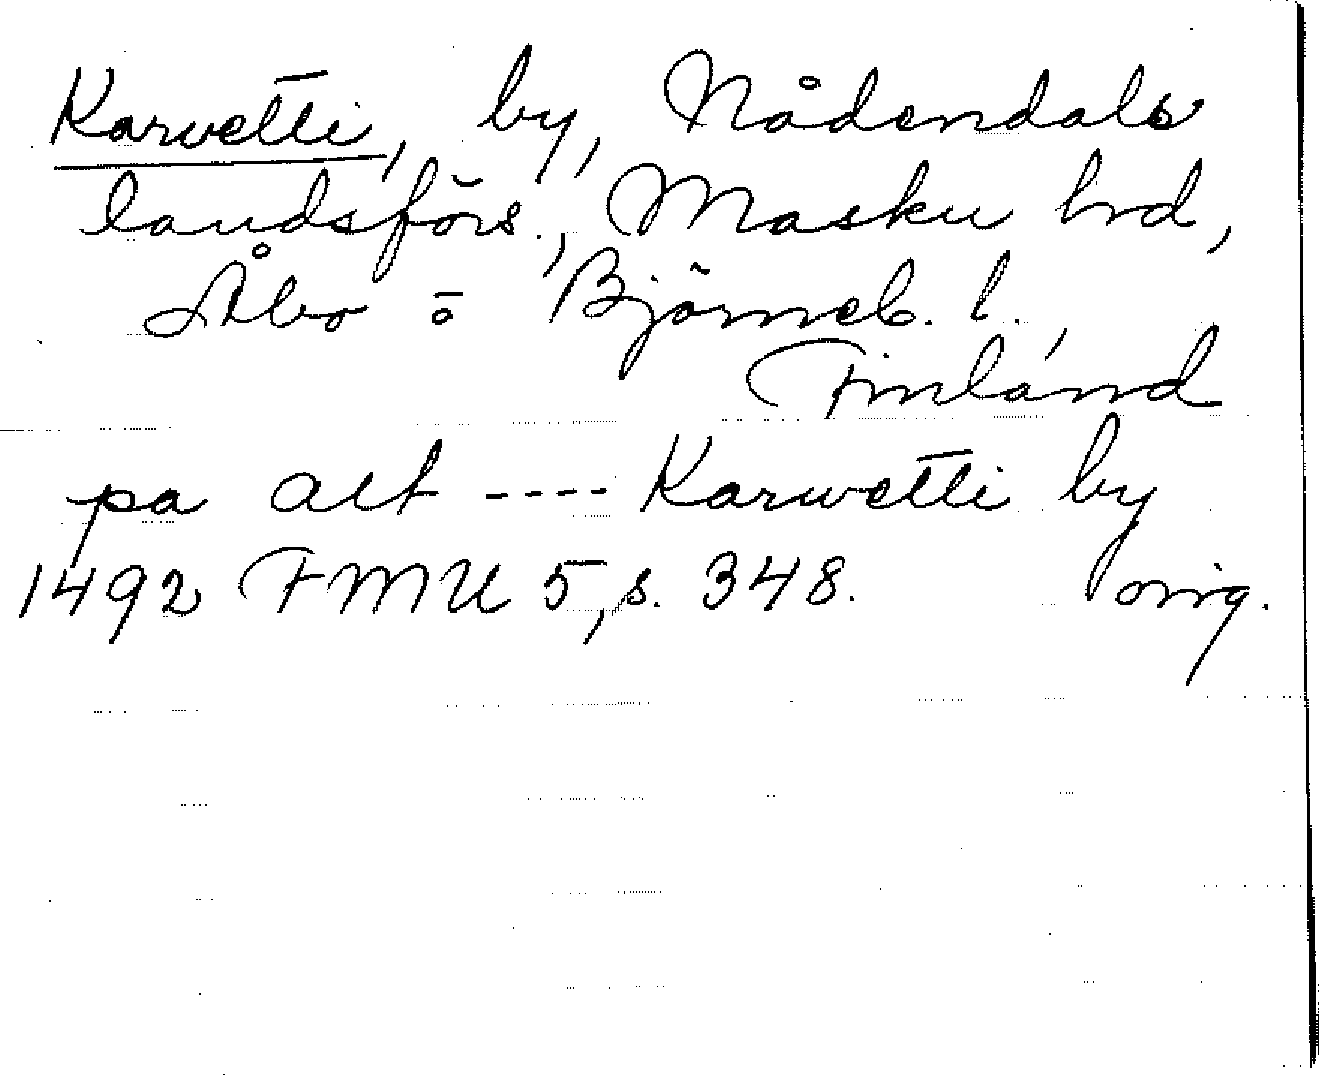 Karvetti, by, Nådendals
landsförs., Masku hrd,
Åbo o Björneb. l.,
Finland
pa alt ---- Karwetti by
1492 FMU 5, s. 348. orig.